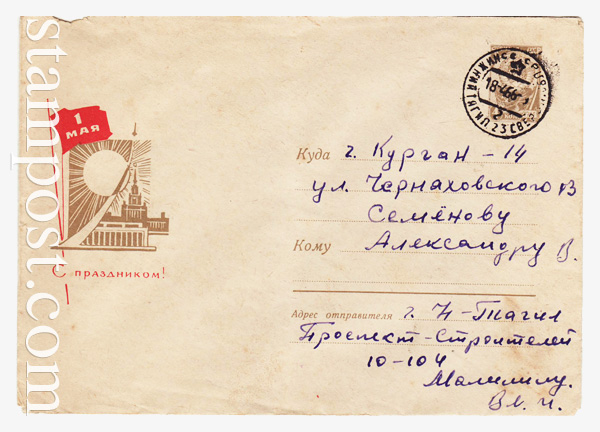 stampost.com
1
МАЯ
С праздником!
Куда г. Курган - 14
ул. Черняховского 13
Семёнову
Кому Александру В.
Адрес отправителя г. Н-Тагил
Проспект-Строителей
10-104
Вл. И.